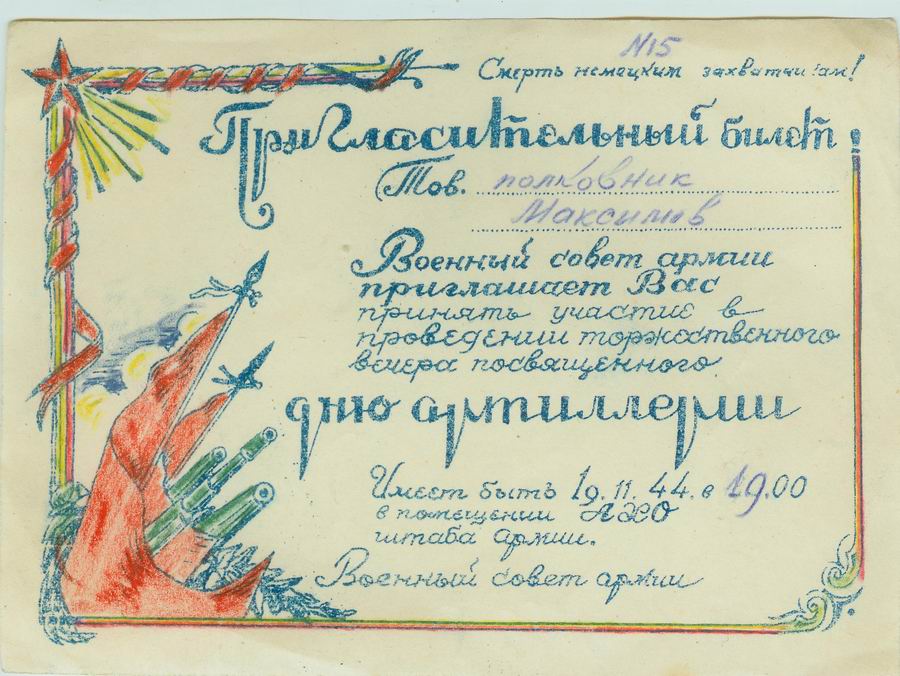 №15
Смерть немецким захватчикам!
Пригласительный билет!
Тов. полковник
Максимив
Военный совет армии
приглашает Вас
принять участие в
проведении торжественного
вечера посвященного
дню артиллерии
Имеет быть 19.11.44. в 19.00
в помещении АХО
штаба армии.
Военный совет армии